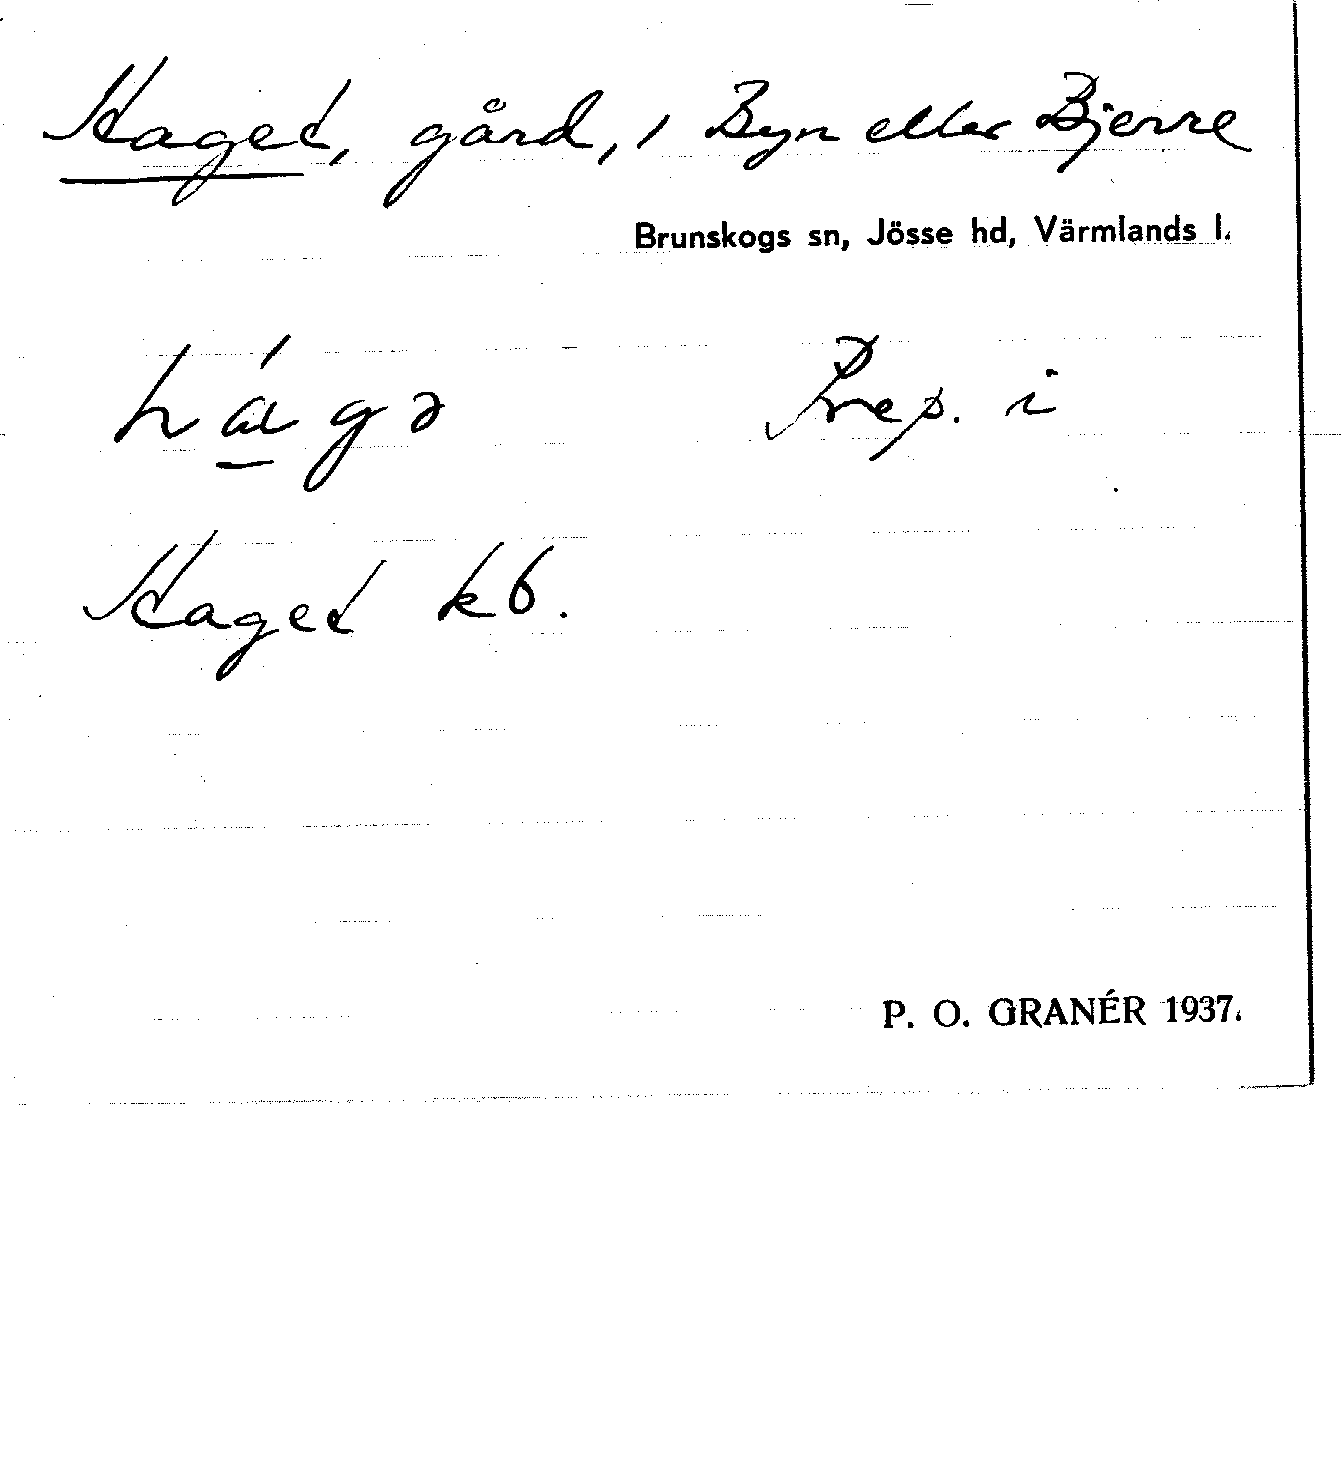 Haget, gård, / Byn eller Bjerre
Brunskogs sn, Jösse hd, Värmlands l.
há̱gə Prep. i
Haget kb.
P. O. GRANÉR 1937.